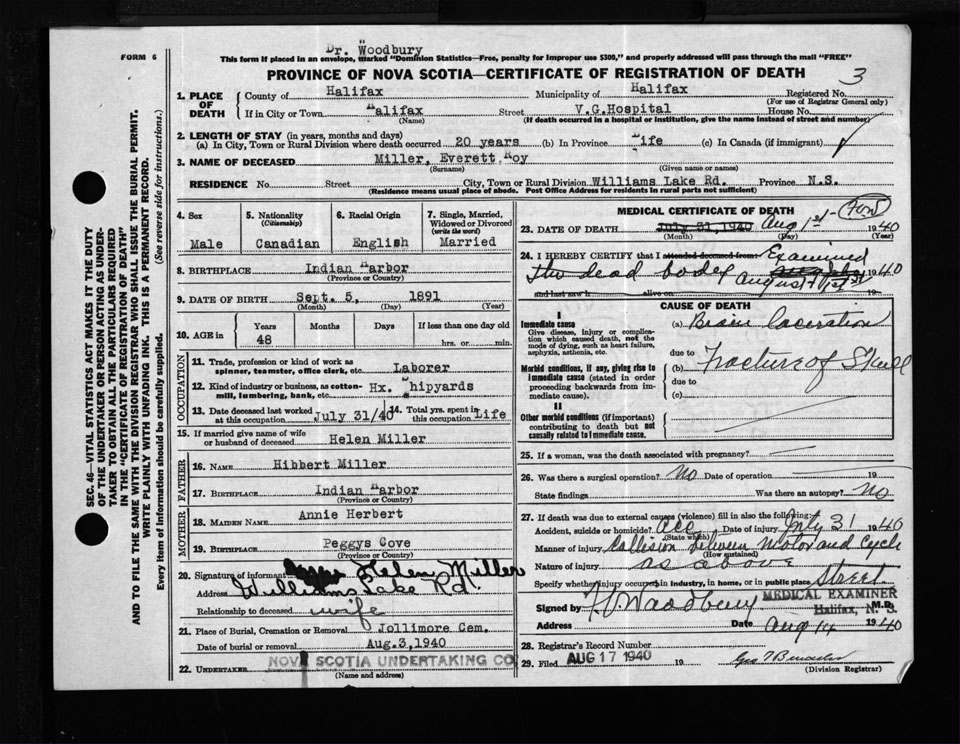 Dr. Woodbury
FORM 6
This form if placed in an envelope, marked "Dominion Statistics—Free, penalty for improper use $300," and properly addressed will pass through the mail "FREE"
PROVINCE OF NOVA SCOTIA—CERTIFICATE OF REGISTRATION OF DEATH
3
1. PLACE OF DEATH
County of Halifax Municipality of Halifax Registered No.
(For use of Registrar General only)
If in City or Town Halifax Street V.G.Hospital House No.
(Name) (If death occurred in a hospital or institution, give the name instead of street and number)
2. LENGTH OF STAY (in years, months and days)
(a) In City, Town or Rural Division where death occurred 20 years (b) In Province Life (c) In Canada (if immigrant)
3. NAME OF DECEASED Miller, Everett Roy
(Surname) (Given name or names)
RESIDENCE No. Street City, Town or Rural Division Williams Lake Rd. Province N.S.
(Residence means usual place of abode. Post Office Address for residents in rural parts not sufficient)
4. Sex
Male
5. Nationality
(Citizenship)
Canadian
6. Racial Origin
English
7. Single, Married, Widowed or Divorced
(write the word)
Married
8. BIRTHPLACE Indian Harbor
(Province or Country)
9. DATE OF BIRTH Sept. 5, 1891
(Month) (Day) (Year)
10. AGE in Years Months Days If less than one day old
48 hrs. or min.
OCCUPATION
11. Trade, profession or kind of work as spinner, teamster, office clerk, etc. Laborer
12. Kind of industry or business, as cotton-mill, lumbering, bank, etc. Hx. Shipyards
13. Date deceased last worked at this occupation July 31/40
14. Total yrs. spent in this occupation Life
15. If married give name of wife or husband of deceased Helen Miller
FATHER
16. NAME Hibbert Miller
17. BIRTHPLACE Indian Harbor
(Province or Country)
MOTHER
18. MAIDEN NAME Annie Herbert
19. BIRTHPLACE Peggys Cove
(Province or Country)
20. Signature of informant Helen Miller
Address Williams Lake Rd.
Relationship to deceased wife
21. Place of Burial, Cremation or Removal Jollimore Cem.
Date of burial or removal Aug.3,1940
22. UNDERTAKER NOVA SCOTIA UNDERTAKING CO
(Name and Address)
MEDICAL CERTIFICATE OF DEATH
23. DATE OF DEATH July 31, 1940 Aug 1st 1940
(Month) (Day) (Year)
24. I HEREBY CERTIFY that I attended deceased from Examined
the dead body August 1st 1940
and last saw h alive on 19
CAUSE OF DEATH
I
Immediate cause
Give disease, injury or complication which caused death, not the mode of dying, such as heart failure, asphyxia, asthenia, etc.
(a) Brain Laceration
due to
Morbid conditions, if any, giving rise to immediate cause (stated in order proceeding backwards from immediate cause).
(b) Fracture of Skull
due to
(c)
II
Other morbid conditions (if important) contributing to death but not causally related to immediate cause.
25. If a woman, was the death associated with pregnancy?
26. Was there a surgical operation? No Date of operation 19
State findings Was there an autopsy? No
27. If death was due to external causes (violence) fill in also the following:
Accident, suicide or homicide? acc Date of injury July 31 1940
(State which)
Manner of injury Collision between Motor and Cycle
(How sustained)
Nature of injury as above
Specify whether injury occurred in industry, in home, or in public place Street
Signed by Woodbury M.D.
MEDICAL EXAMINER
Halifax, N. S.
Address Date Aug 14 1940
28. Registrar's Record Number
29. Filed AUG 17 1940 19
(Division Registrar)
SEC. 46—VITAL STATISTICS ACT MAKES IT THE DUTY
OF THE UNDERTAKER OR PERSON ACTING AS UNDERTAKER TO OBTAIN ALL THE PARTICULARS REQUIRED
IN THE "CERTIFICATE OF REGISTRATION OF DEATH"
AND TO FILE THE SAME WITH THE DIVISION REGISTRAR WHO SHALL ISSUE THE BURIAL PERMIT.
WRITE PLAINLY WITH UNFADING INK. THIS IS A PERMANENT RECORD.
Every item of Information should be carefully supplied. (See reverse side for instructions.)